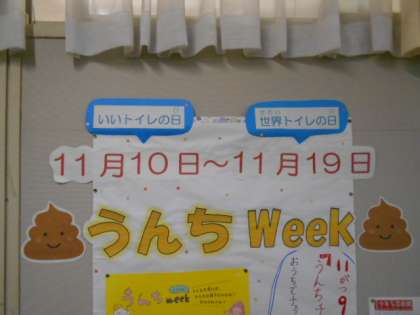 いいトイレの日
世界トイレの日
11月10日～11月19日
うんち Week
うんち week
11がつ9
うんち
おうちで